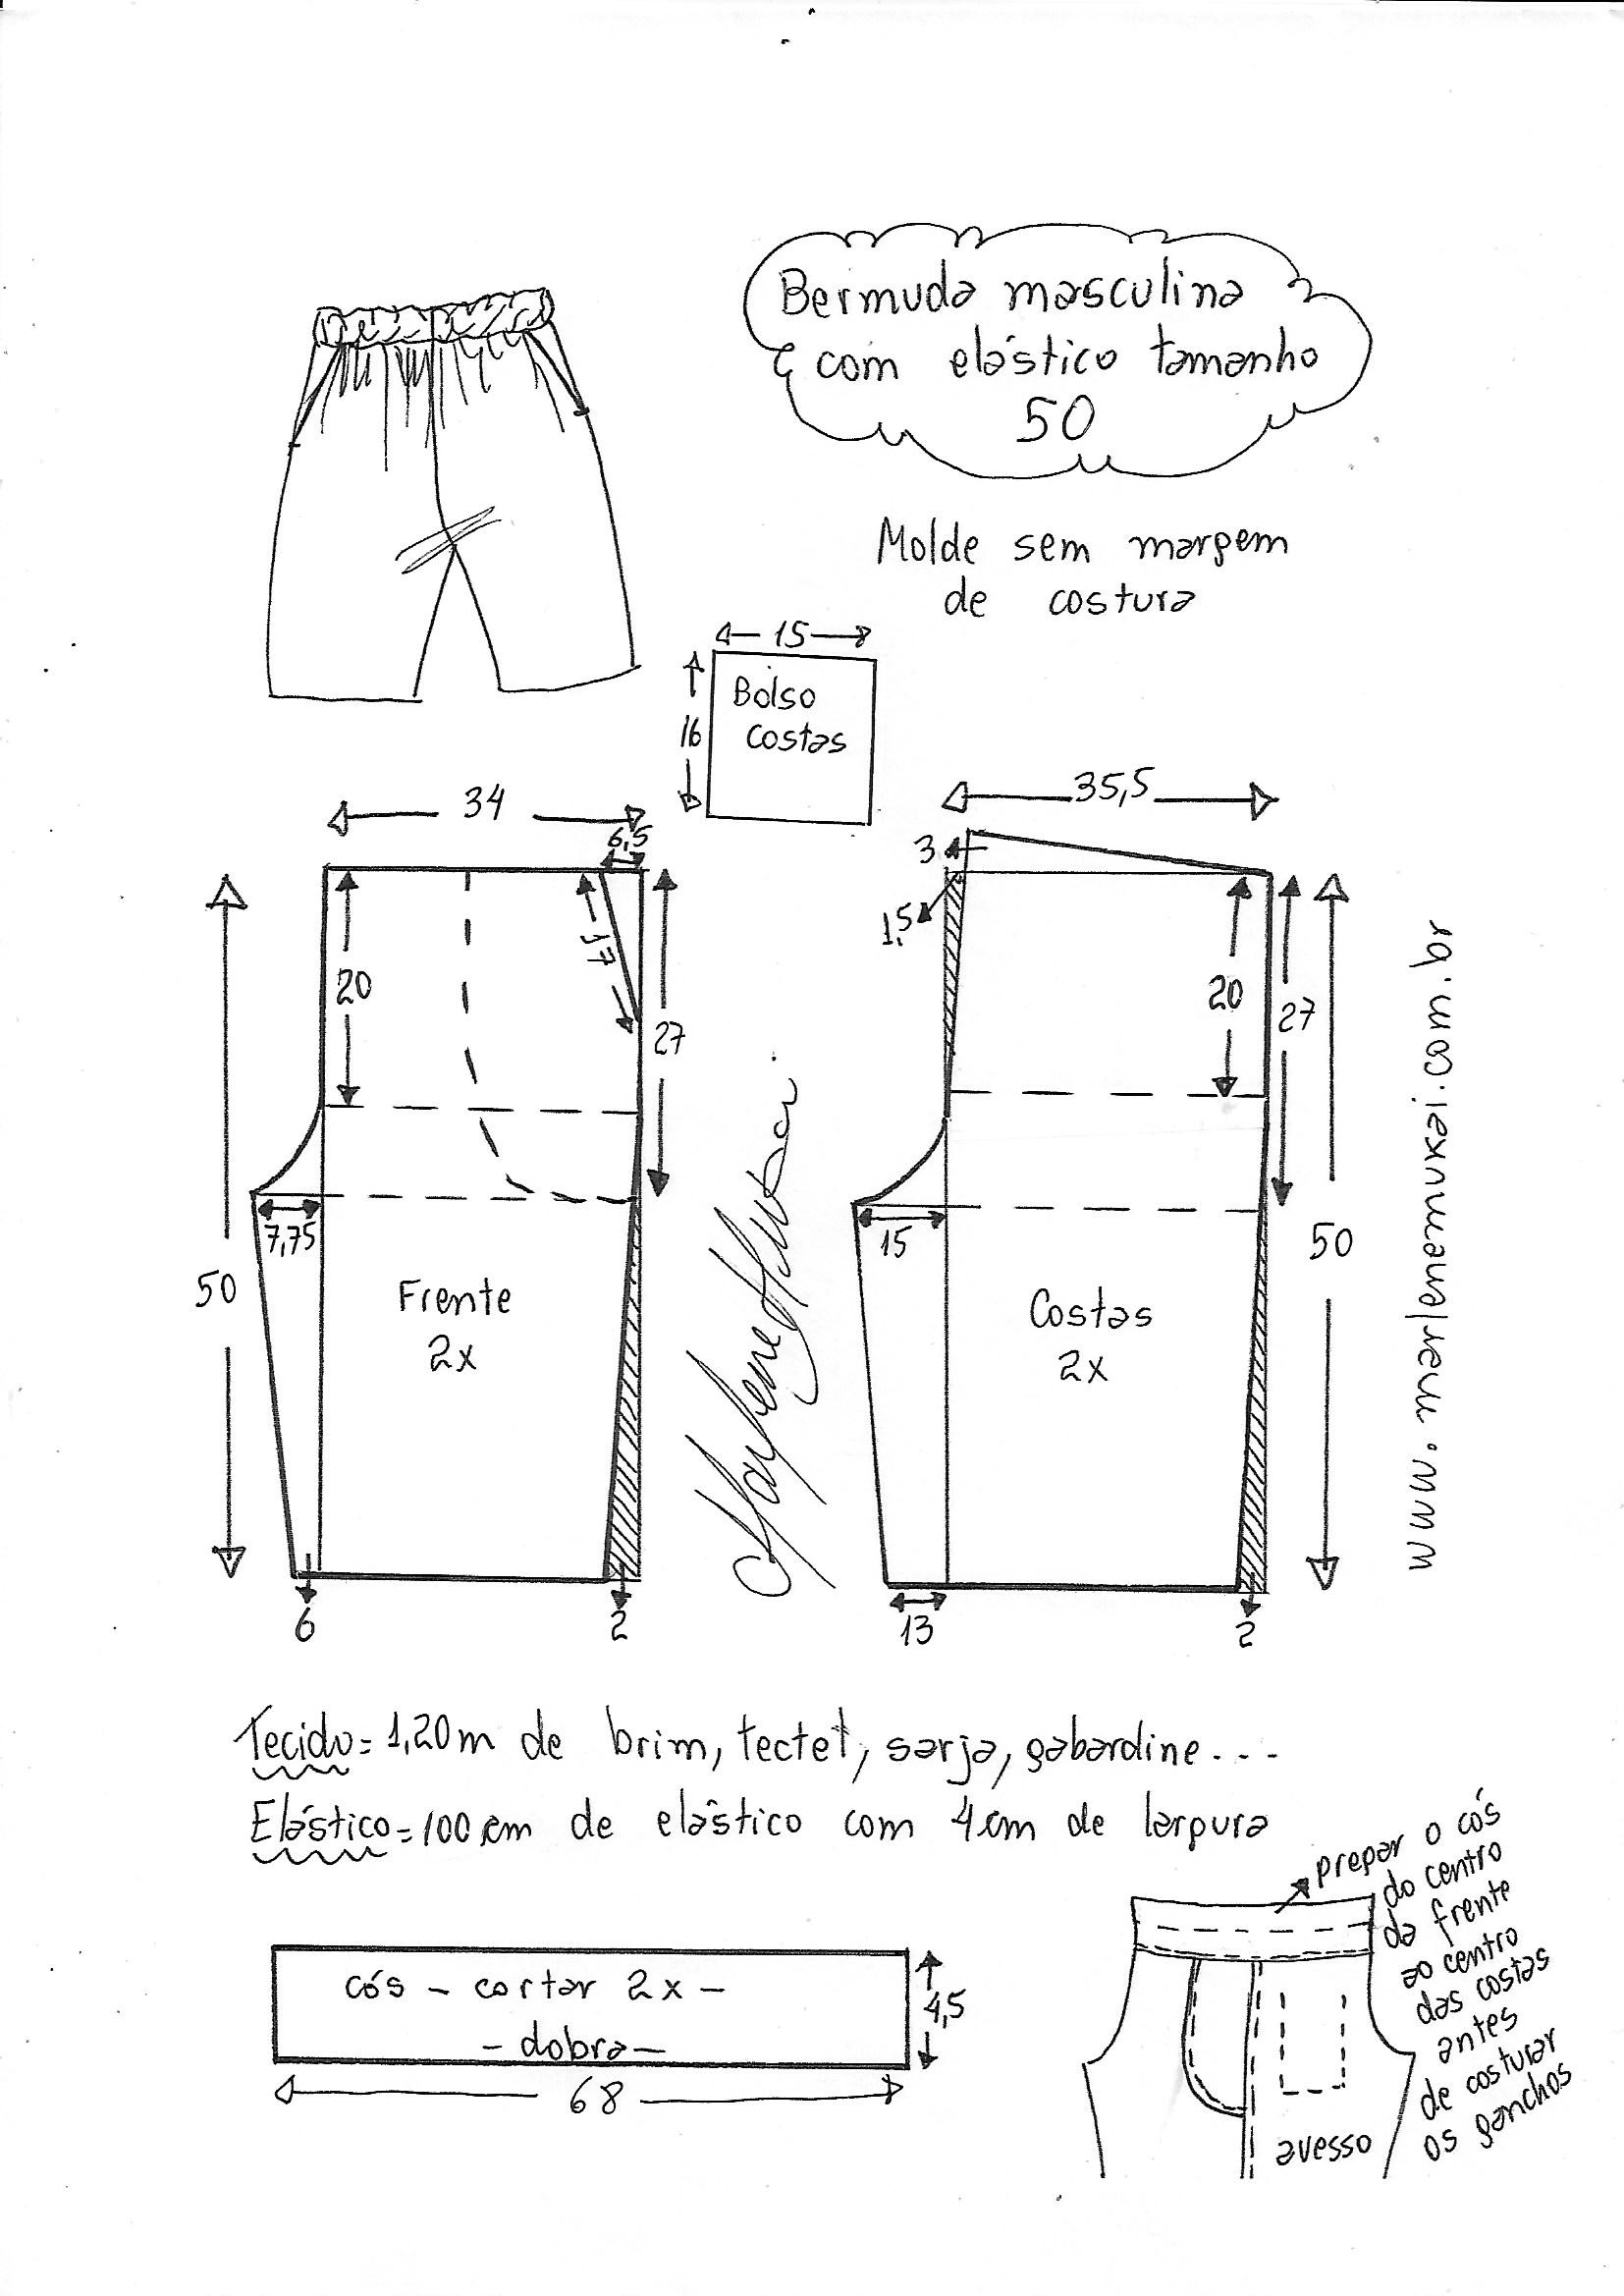 Bermuda masculina
com elástico tamanho
50
Molde sem margem
de costura
15
16
Bolso
costas
34
6,5
17
20
27
50
7,75
Frente
2x
6
2
35,5
3
1,5
20
27
50
15
Costas
2x
13
2
Marlene Mukai
www.marlenemukai.com.br
Tecido = 1,20m de brim, tectel, sarja, gabardine...
Elástico = 100 cm de elástico com 4 cm de largura
cós - cortar 2x -
- dobra -
4,5
68
pregar o cós
do centro
da frente
ao centro
das costas
antes
de costurar
os ganchos
avesso